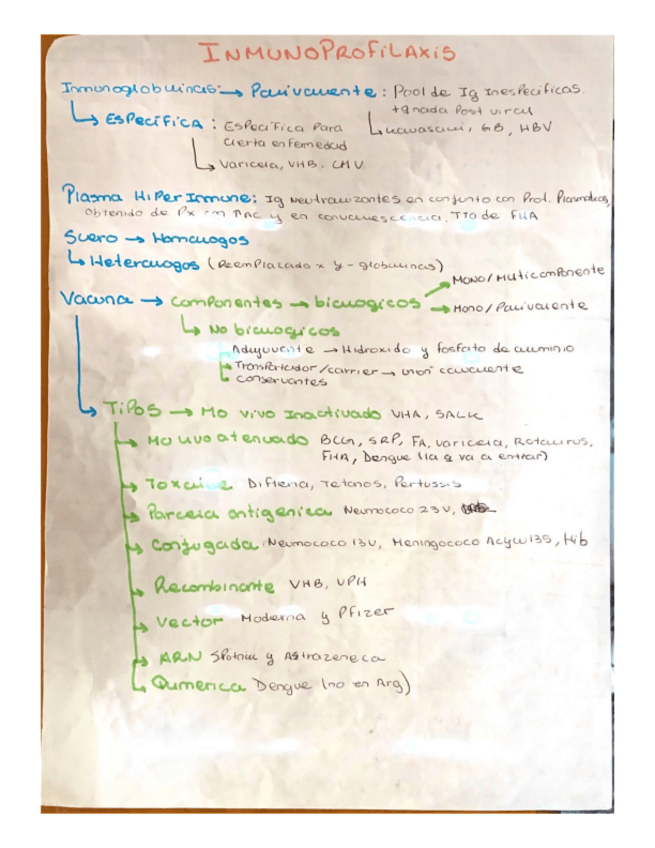 INMUNOPROFILAXIS
Inmunoglobulinas → Polivalente : Pool de Ig Inespecificas.
↳ Específica : Específica para
cierta enfermedad
tgnada Post viral
↳ Kawasaki, GB, HBV
↳ Varicela, VHB, CMV
Plasma HiPer Inmune: Ig Neutralizantes en conjunto con Prot. Plasmaticas,
obtenido de Px con DAC y en convalescencia. TTO de FHA
Suero → Homologos
↳ Heterologos (Reemplazado x γ-globulinas)
Vacuna → Componentes → biologicos
Mono/Multicomponente
→ Mono/Polivalente
↳ No biologicos
Adyuvante → Hidroxido y fosfato de aluminio
Transportador/carrier → union covalente
conservantes
↳ Tipos → Mo vivo Inactivado VHA, SALK
Mo vivo atenuado BCG, SRP, FA, Varicela, Rotavirus,
FHA, Dengue (la q va a entrar)
Toxoide Difteria, Tetanos, Pertussis
Parcela antigenica Neumococo 23V,
Conjugada Neumococo 13V, Meningococo ACYW135, Hib
Recombinante VHB, VPH
Vector Moderna y Pfizer
ARN Sputnik y Astrazeneca
Quimerica Dengue (no en Arg)